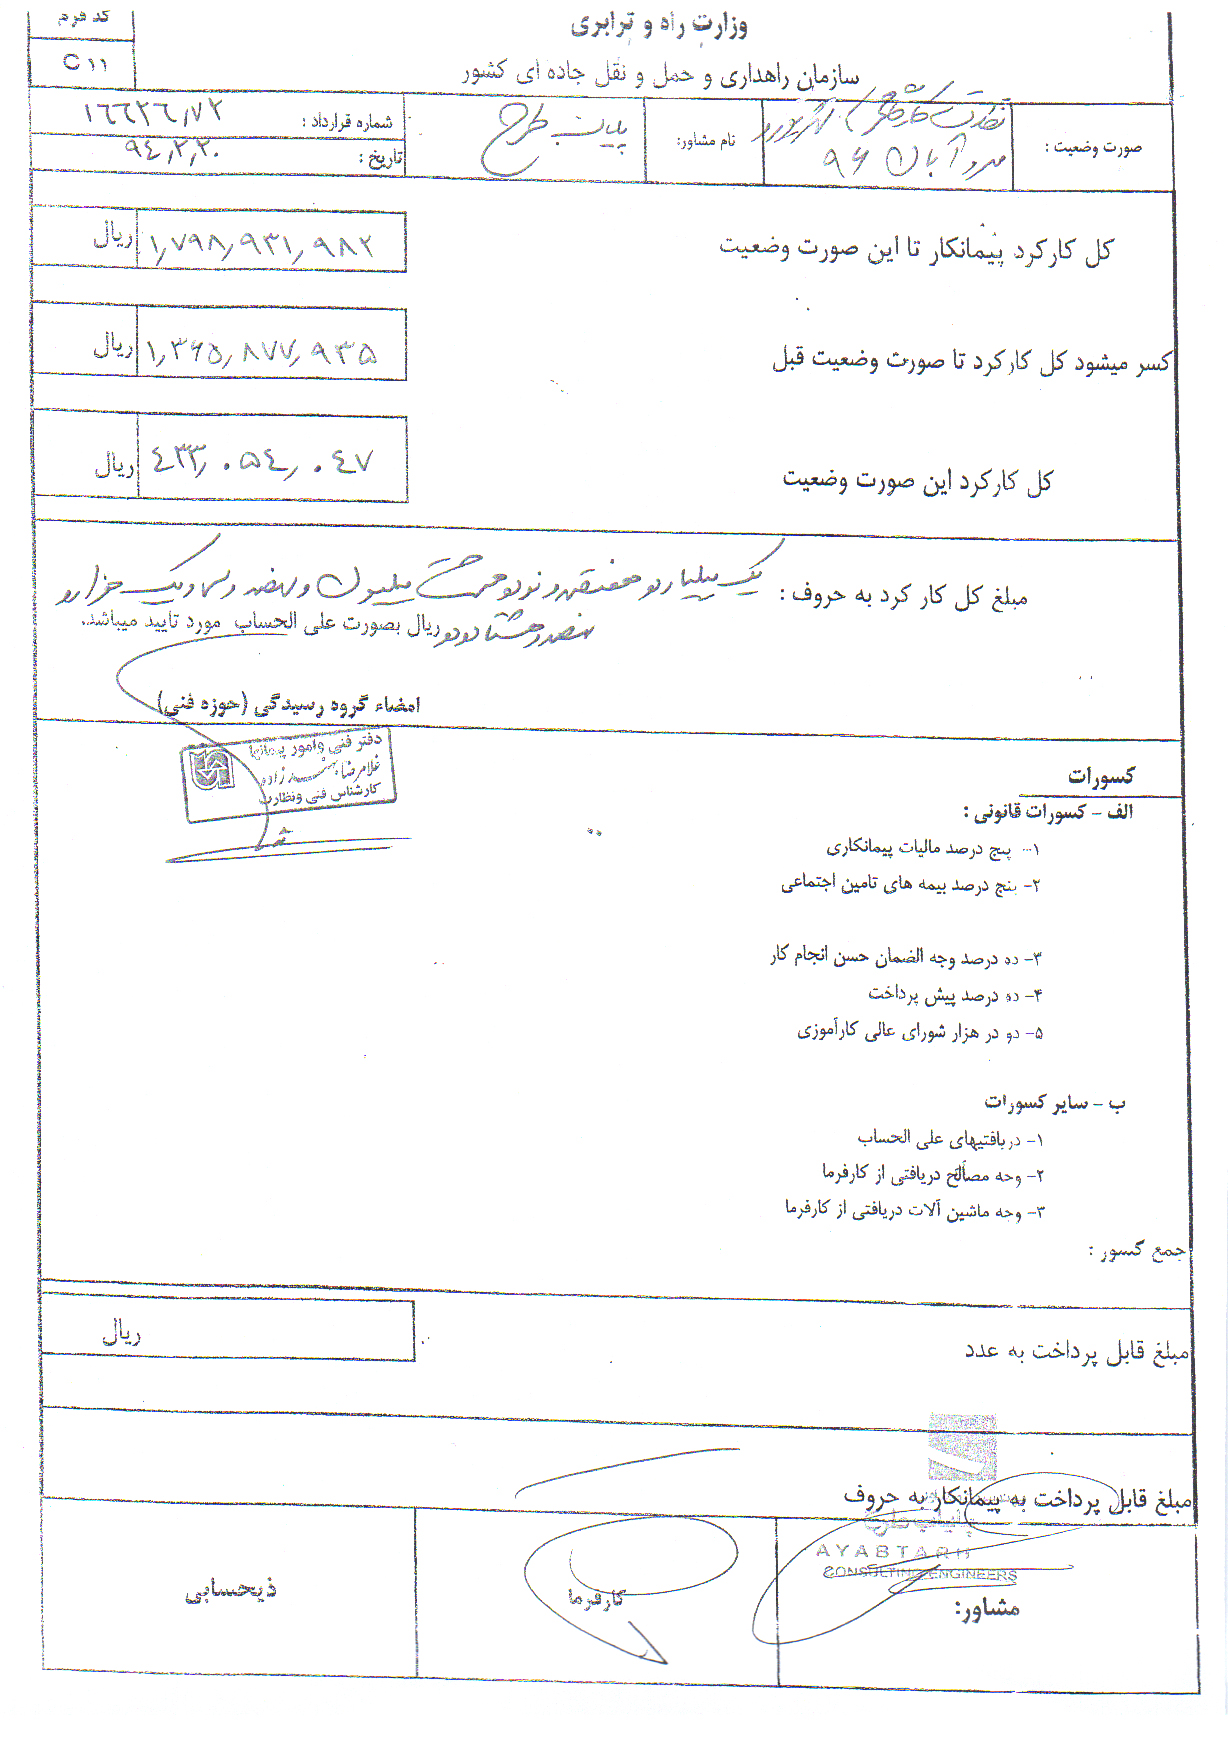 کد فرم
C ۱۱
وزارت راه و ترابری
سازمان راهداری و حمل و نقل جاده ای کشور
صورت وضعیت :
نظارت کارگاهی
آبان ۹۶
نام مشاور:
پایاب طرح
شماره قرارداد : ۱۶۶۲۶/۷۲
تاریخ : ۹۴/۲/۲۰
کل کارکرد پیمانکار تا این صورت وضعیت
۱/۷۹۸/۹۳۱/۹۸۲ ریال
کسر میشود کل کارکرد تا صورت وضعیت قبل
۱/۳۶۵/۸۷۷/۹۳۵ ریال
کل کارکرد این صورت وضعیت
۴۳۳/۰۵۴/۰۴۷ ریال
مبلغ کل کار کرد به حروف : یک میلیارد و هفتصد و نود و هشت میلیون و نهصد و سی و یک هزار و
نهصد و هشتاد و دو ریال بصورت علی الحساب مورد تایید میباشد.
امضاء گروه رسیدگی (حوزه فنی)
دفتر فنی وامور پیمانها
غلامرضا
کارشناس فنی ونظارت
کسورات
الف - کسورات قانونی :
۱- پنج درصد مالیات پیمانکاری
۲- پنج درصد بیمه های تامین اجتماعی
۳- ده درصد وجه الضمان حسن انجام کار
۴- ده درصد پیش پرداخت
۵- دو در هزار شورای عالی کارآموزی
ب - سایر کسورات
۱- دریافتیهای علی الحساب
۲- وجه مصالح دریافتی از کارفرما
۳- وجه ماشین آلات دریافتی از کارفرما
جمع کسور :
مبلغ قابل پرداخت به عدد
ریال
مبلغ قابل پرداخت به پیمانکار به حروف
پایاب طرح
AYABTARH
CONSULTING ENGINEERS
مشاور:
کارفرما
ذیحسابی